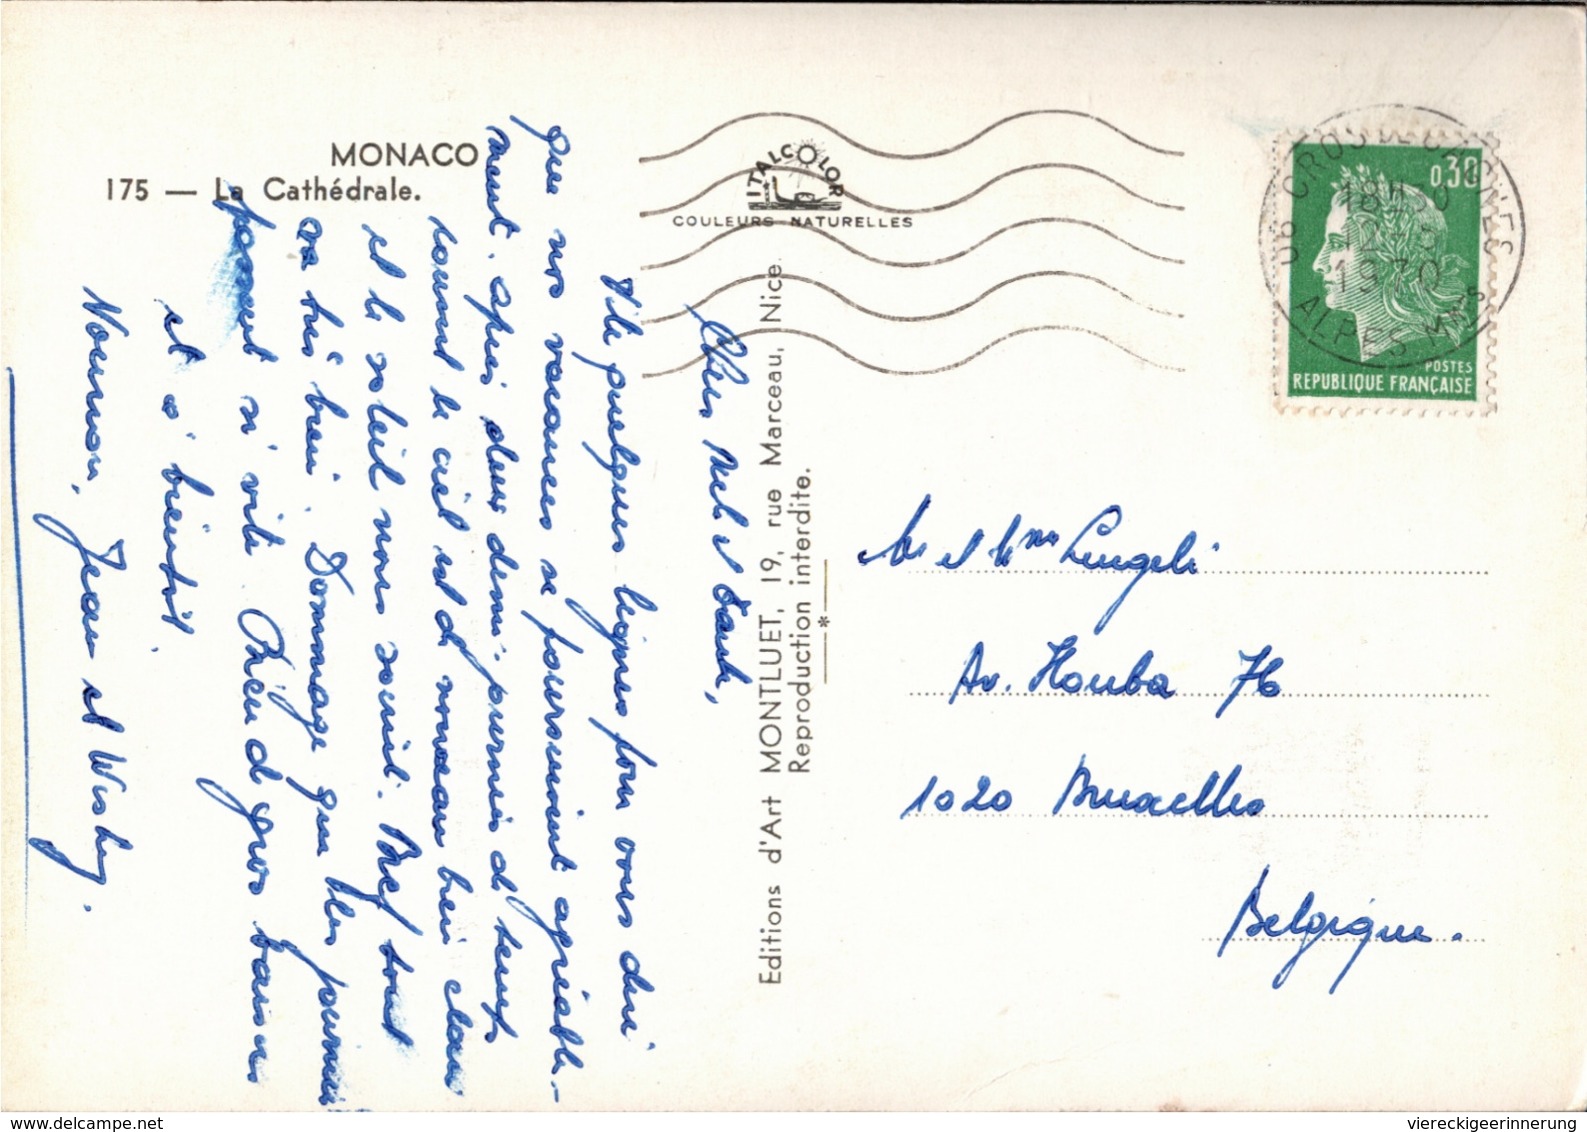 MONACO
175 — La Cathédrale.
ITALCOLOR
COULEURS NATURELLES
06 CROS DE CAGNES
18H30
12-5
1970
ALPES Mmes
0,30
POSTES
REPUBLIQUE FRANÇAISE
Editions d'Art MONTLUET, 19, rue Marceau, Nice
Reproduction interdite.
*
Chers et Tante,
Vite quelques lignes pour vous dire
que nos vacances se poursuivent agréable-
ment. après deux demi-journées de temps
couvert le ciel est de nouveau bien clair
et le soleil nous sourit. Bref tout
va très bien. Dommage que les journées
passent si vite. Bien de gros baisers
et à bientôt.
Jean et
Mr et Mme Lengeli
Av. Houba 76
1020 Bruxelles
Belgique.
viereckigeerinnerung